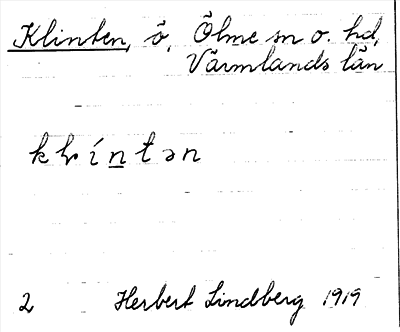 Klinten, ö, Ölme sn o. hd,
Värmlands län
2 Herbert Lindberg 1919